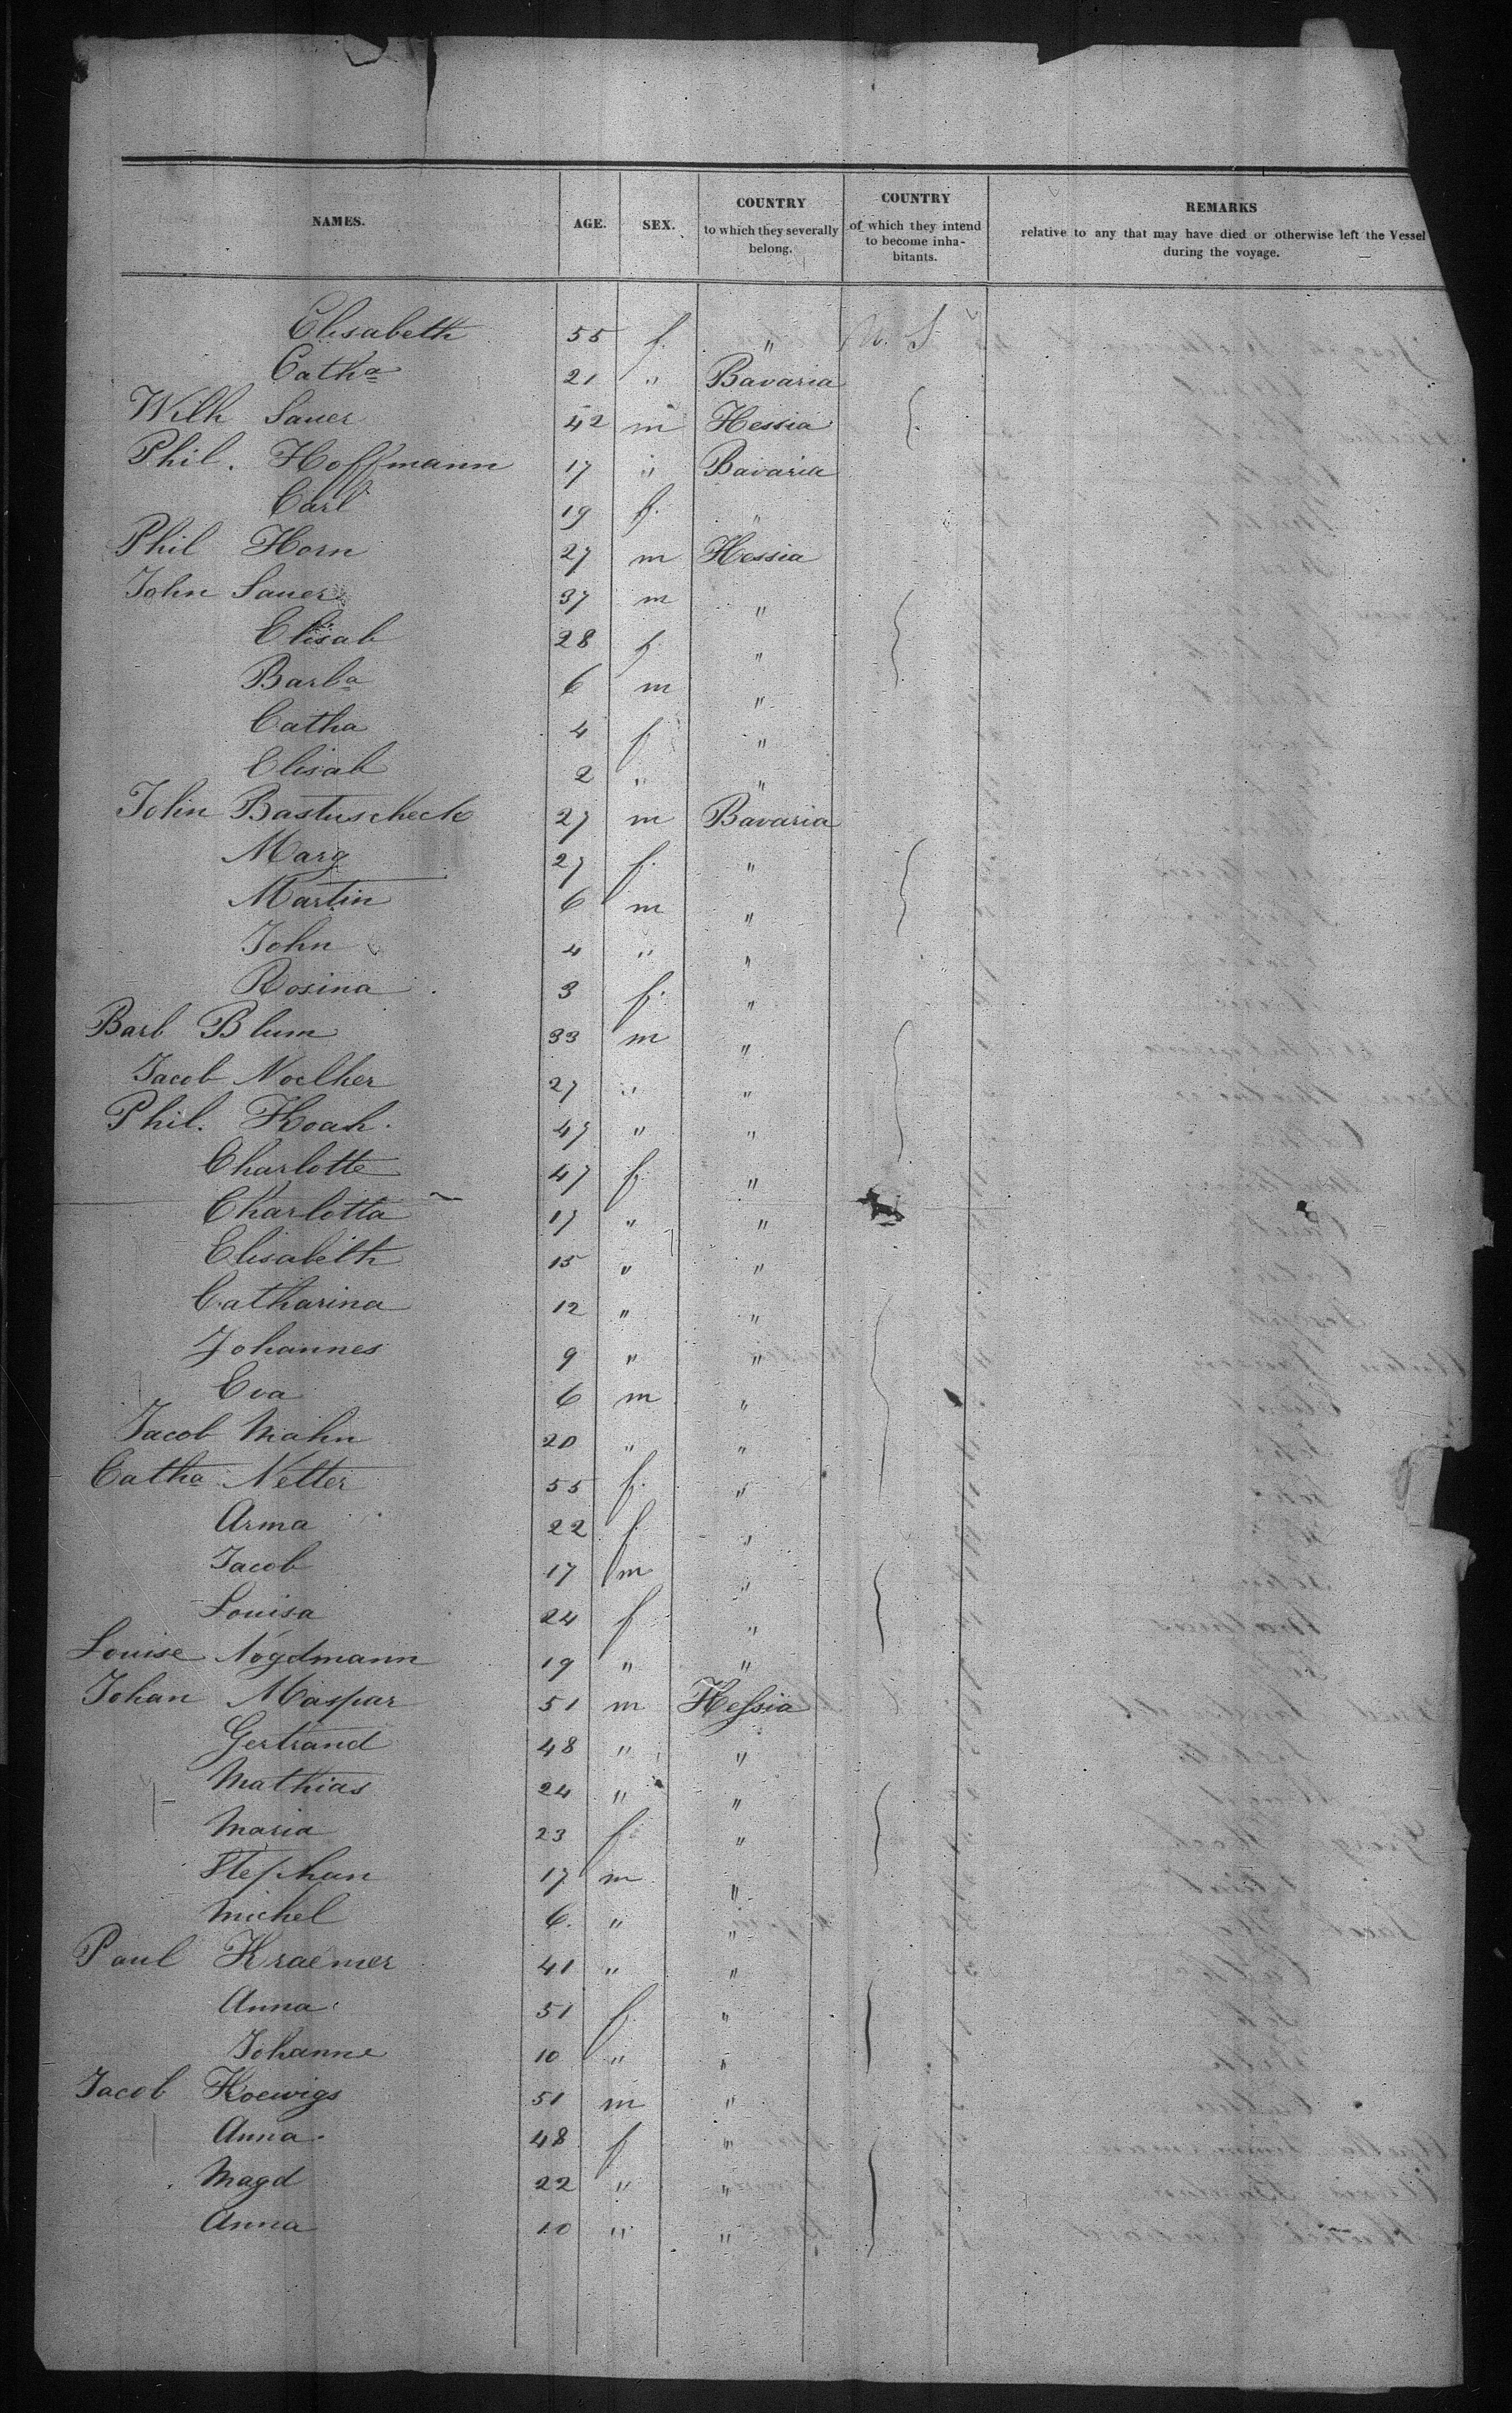 NAMES. AGE. SEX. COUNTRY to which they severally belong. COUNTRY of which they intend to become inha- bitants. REMARKS relative to any that may have died or otherwise left the Vessel during the voyage.
Elisabeth 55 f. " U. S
Catha 21 " Bavaria
Wilh Sauer 42 m Hessia
Phil. Hoffmann 17 " Bavaria
Carl 19 f. "
Phil Horn 27 m Hessia
John Sauer 37 m "
Elisab 28 f. "
Barba 6 m "
Catha 4 f "
Elisab 2 " "
John Bastuscheck 27 m Bavaria
Marg 27 f. "
Martin 6 m "
John 4 " "
Rosina 3 f. "
Barb Blum 33 m "
Jacob Noelker 27 " "
Phil. Hoah. 47 " "
Charlotte 47 f "
Charlotta 17 " "
Elisabeth 15 " "
Catharina 12 " "
Johannes 9 " "
Eva 6 m "
Jacob Mahn 20 " "
Catha Netter 55 f. "
Arma 22 f "
Jacob 17 m "
Louisa 24 f "
Louise Nogdmann 19 " "
Johan Maspar 51 m Hessia
Gertrand 48 " "
Mathias 24 " "
Maria 23 f "
Stephan 17 m "
Michel 6. " "
Paul Kraemer 41 " "
Anna 51 f "
Johanne 10 " "
Jacob Koewigs 51 m "
Anna. 48 f "
Magd 22 " "
Anna 10 " "